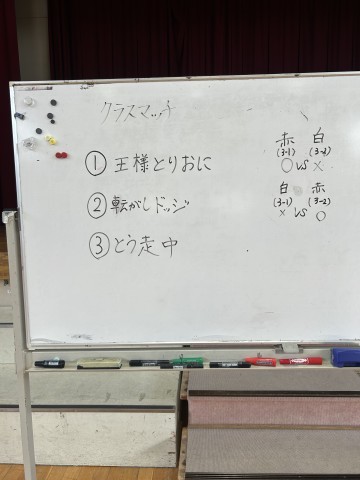 クラスマッチ
① 王様とりおに
② 転がしドッジ
③ とう走中
赤 白
(3-1) (3-2)
○ vs ×
白 赤
(3-1) (3-2)
× vs ○